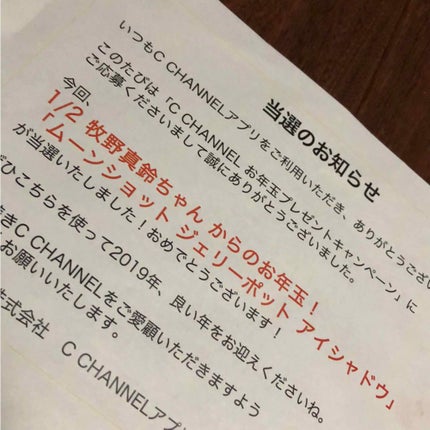 当選のお知らせ
いつもC CHANNELアプリをご利用いただき、ありがとうござい
このたびは「C CHANNEL お年玉プレゼントキャンペーン」に
ご応募くださいまして誠にありがとうございました。
今回、
1/2 牧野真鈴ちゃん からのお年玉！
「ムーンショット ジェリーポット アイシャドウ」
が当選いたしました！おめでとうございます！
ひこちらを使って2019年、良い年をお迎えくださいね。
きC CHANNELをご愛顧いただきますよう
お願いいたします。
式会社 C CHANNELアプ